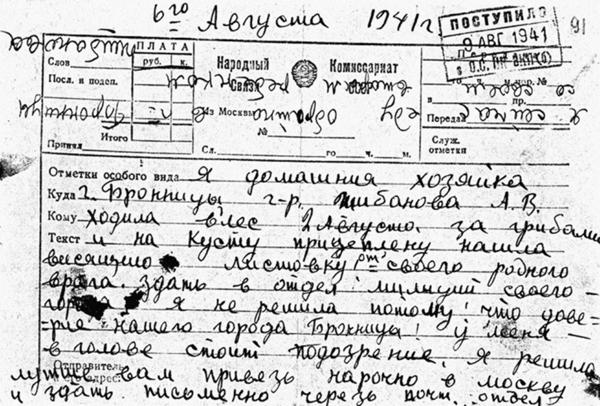 6го Августа 1941г
ПОСТУПИЛО
9 АВГ 1941
91
ПЛАТА
Слов
руб. к.
Посл. и подеп.
Итого
Принял
Народный Комиссариат
Связи
Из Москвы
№
Сл. го ч. м.
в пр.
Передал
Служ.
отметки
Отметки особого вида Я домашния хозяйка
Куда г. Бронницы г-р. Шибанова А. В.
Кому ходила в'лес 2 Августа за грибами
Текст и на кусту прицеплену нашла
висящию листовку от своего родного
врага. здать в отдел милиций своего
города я не решила потому! что дове-
=рие нашего города Бронницы! у меня
в голове стоит подозрение, я решила
лутше вам привезь нарочно в москву
и здать письменно черезь почт. отдел
Отправитель
адрес: